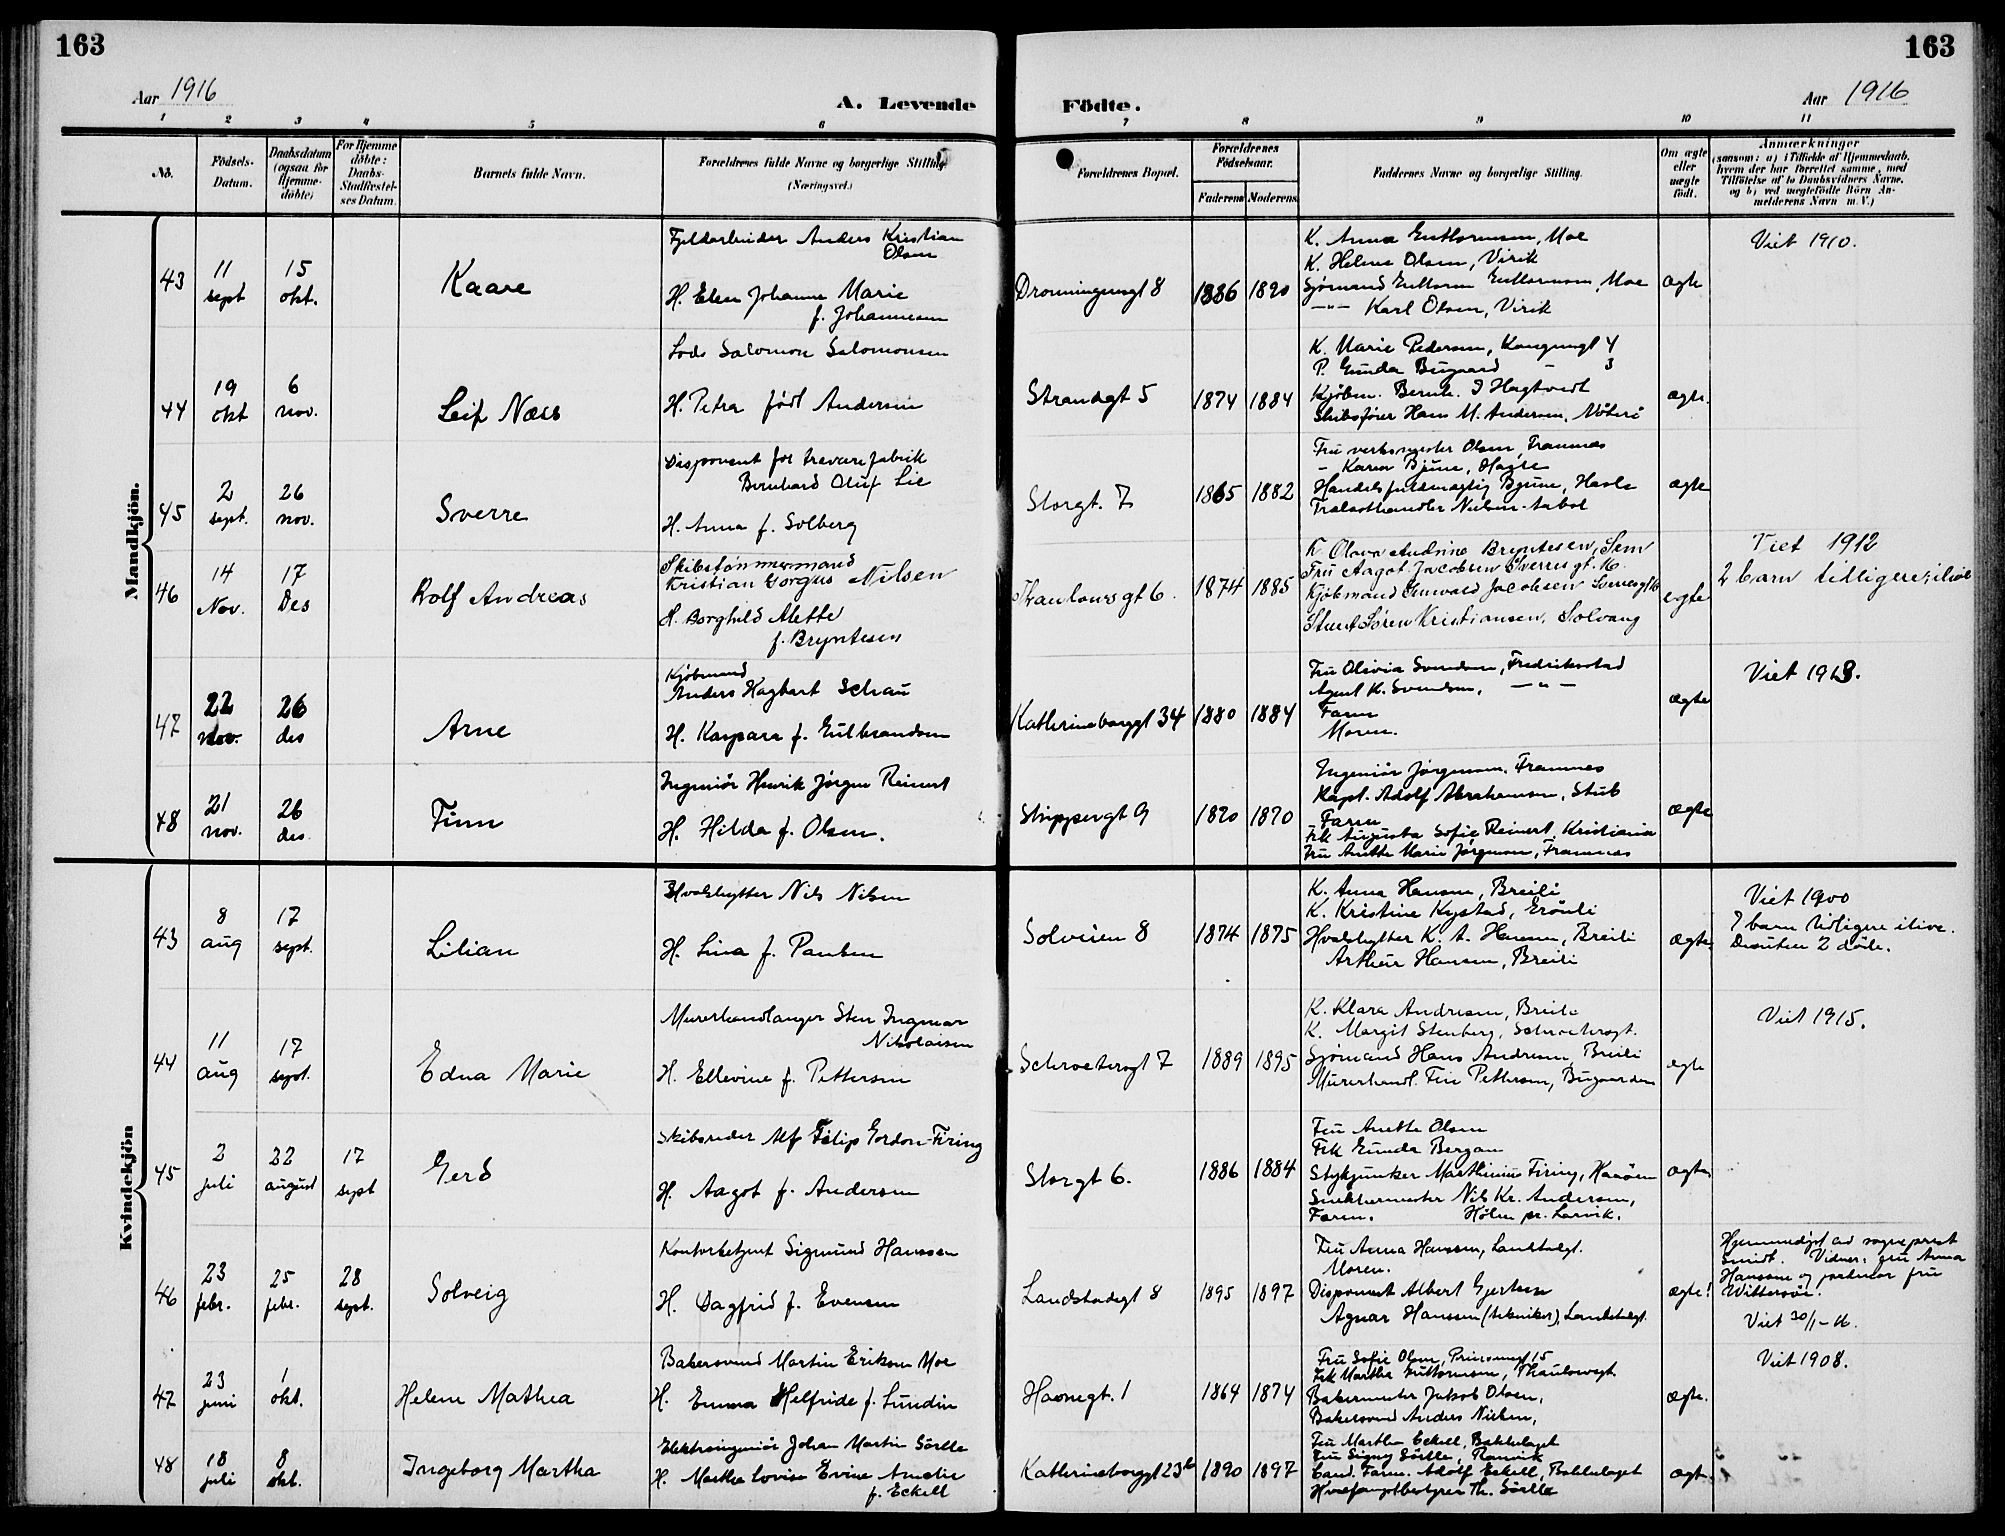 163
163
Aar 1916
A. Levende
Födte.
Aar 1916
1 2 3 4 5 6 7 8 9 10 11
No.
Födsels-Datum.
Daabsdatum (ogsaa for Hjemme-döbte)
For Hjemme döbte: Daabs-Stadfæstel-ses Datum.
Barnets fulde Navn.
Forældrenes fulde Navne og borgerlige Stilling. (Næringsvei.)
Forældrenes Bopæl.
Forældrenes Födselsaar.
Faderens
Moderens
Faddernes Navne og borgerlige Stilling.
Om ægte eller uægte födt.
Anmærkninger
(saasom: a) i Tilfælde af Hjemmedaab, hvem der har forrettet samme, med Tilföielse af to Daabsvidners Navne, og b) ved uægtefödte Börn An-melderens Navn m. V.)
Mandkjön.
43 11 sept 15 okt. Kaare
Anders Kristian Olsen
H. Elen Johanne Marie
f. Johannesen
Dronningensgt 8 1886 1890
K. Anna Guttormsen, Moe
K. Helene Olsen, Virik
Sjømand Guttorm Guttormsen, Moe
-"- Karl Olsen, Virik
ægte
Viet 1910.
44 19 okt 6 nov. Leif Næss
Lods Salomon Salomonsen
H. Petra født Andersen
Strandgt 5 1874 1884
K. Marie Pedersen, Kongensgt 4
P. Gunda Bugaard - 3
Kjøbm. Bernh. I Hagtvedt
Skibsfører Hans M. Andersen, Nøterö
ægte.
45 2 sept. 26 nov. Sverre
Disponent for trævarefabrik
Bernhard Oluf Lie
H. Anna f. Solberg
Storgt. 7 1865 1882
Fru verksmester Olsen, Framnæs
- Karen Bjune,
Handelsfuldmægtig Bjune,
Trælasthandler Nielsen
ægte
46 14 Nov. 17 Des Rolf Andreas
Skibstømmermand
Kristian Gorgus Nilsen
H. Borghild Alette
f. Bryntesen
Thaulowsgt 6. 1874 1885
K. Olava Andrine Bryntesen, Sem
Fru Aagot Jacobsen Sverresgt. 16.
Kjøbmand Jacobsen
Stuert Søren Kristiansen, Solvang
egte
Viet 1912
2 barn tidligere; ilive
47 22 nov. 26 des Arne
Kjøbmand
Anders Hagbart Schau
H. Kaspara f. Gulbrandsen
Katherineborggt 34 1880 1884
Fru Olivia Svendsen, Fredrikstad
Agent K. Svendsen, -"-
Faren
Moren.
ægte
Viet 1913.
48 21 nov. 26 des. Finn
Ingeniør Henrik Jørgen Reinert
H. Hilda f. Olsen.
Skippergt 9 1870 1870
Ingeniør Jørgensen, Framnes
Kapt. Adolf Abrahamsen, Stub
Faren
Frk Augusta Sofie Reinert, Kristiania
Fru Anette Marie Jørgensen, Framnæs
ægte
Kvindekjön
43 8 aug 17 sept. Lilian
Hvalskytter Nils Nilsen
H. Lina f. Paulsen
Solveien 8 1874 1875
K. Anna Hansen, Breili
K. Kristine Kystad,
Hvalskytter K. A. Hansen, Breili
Arthur Hansen, Breili
ægte
Viet 1900
7 barn tidligere ilive.
Desuten 2 døde.
44 11 aug 17 sept. Edna Marie
Murerhandlanger Sten Ingmar
Nikolaisen
H. Ellevine f. Pettersen
Schroetersgt 7 1889 1895
K. Klara Andresen, Breili
K. Margit Stenberg, Schroetersgt.
Sjømand Hans Andresen, Breili
Murerhandl. Pettersen, Bugaarden
egte
Viet 1915.
45 2 juli 22 august 17 sept Gerd
Skibsreder Alf Filip Gordon-Firing
H. Aagot f. Andersen
Storgt 6. 1886 1884
Fru Anette Olsen
Frk Gunda Bergan
Stykjunker Marthinius Firing,
Snekkermester Nils Kr. Andersen,
Faren. Holm pr. Larvik.
ægte
46 23 febr. 25 febr. 28 sept. Solveig
Kontorbetjent Sigmund Hanssen
H. Dagfrid f. Evensen
Landstadsgt 8 1895 1897
Fru Anna Hanssen, Landstadsgt.
Moren.
Disponent Albert Gjertsen
Agnar Hanssen (tekniker), Landstadsgt.
ægte!
Hjemmedøpt av sogneprest
Smidt. Vidner: fru Anna
Hanssen og jordmor fru
Wittersøe.
Viet 30/1-16.
47 23 juni 1 okt. Helene Mathea
Bakersvend Martin Eriksen Moe
H. Emma Helfride f. Lundin
Havnegt. 1 1864 1874
Fru Sofie Olsen, Prinsensgt 15
Frk Martha Guttormsen, Thaulowsgt.
Bakermester Jakob Olsen,
Bakersvend Anders Nielsen,
ægte.
Viet 1908.
48 18 juli 8 okt. Ingeborg Martha
Elektroingeniør Johan Martin Sørlle
H. Martha Lovise Evine Amelie
f. Eckell
Katherineborggt 23b 1890 1897
Fru Martha Eckell, Bakkelaget
Fru Signy Sørlle, Ranvik
Cand. Farm. Adolf Eckell, Bakkelaget
Hvalfangstbestyrer Th. Sørlle
ægt.